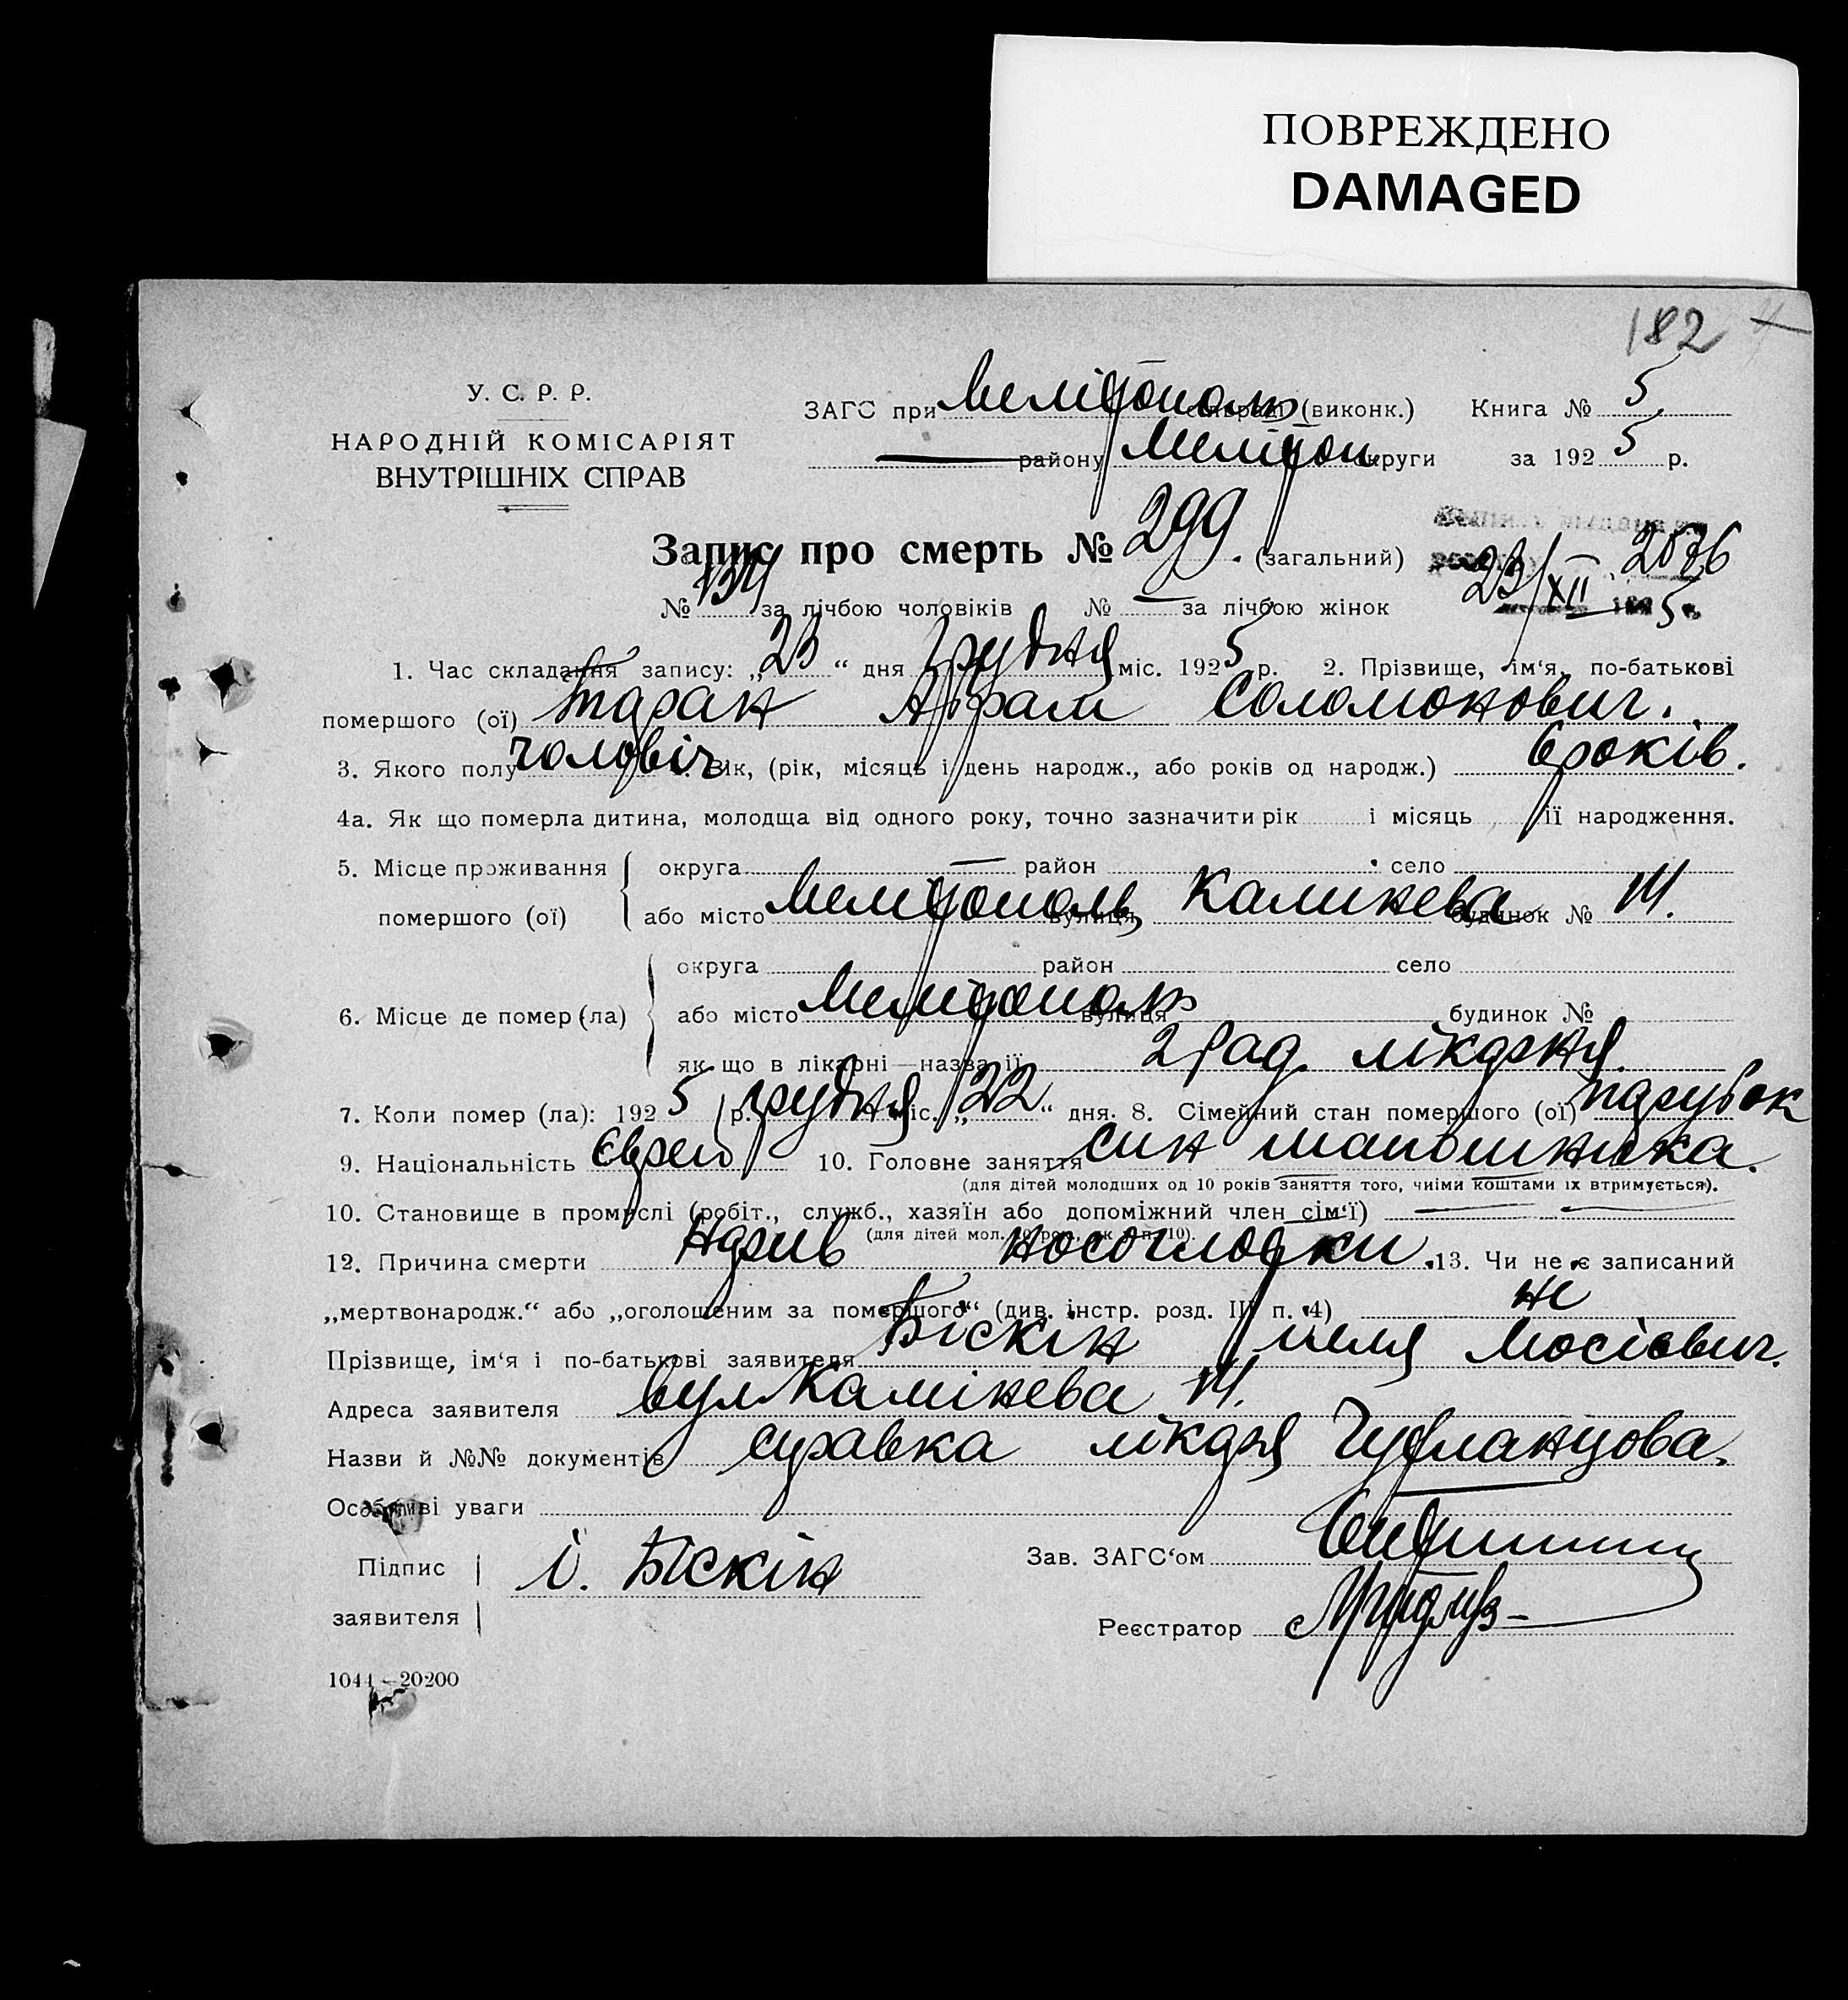 ПОВРЕЖДЕНО
DAMAGED
182
У. С. Р. Р.
НАРОДНІЙ КОМІСАРІЯТ
ВНУТРІШНІХ СПРАВ
ЗАГС при Мелітополь сільраді (виконк.) Книга № 5
району Мелітоп. округи за 1925 р.
Запис про смерть № 299. (загальний)
№ за лічбою чоловіків № — за лічбою жінок
23/XII 5
1. Час складання запису: „23“ дня грудня міс. 1925 р. 2. Прізвище, ім'я, по-батькові
помершого (ої) Абрам Соломонович.
3. Якого полу чоловіч. Вік, (рік, місяць і день народж., або років од народж.) 6 років.
4а. Як що померла дитина, молодща від одного року, точно зазначити рік і місяць її народження.
5. Місце проживання округа — район село
помершого (ої) або місто Мелітополь вулиця будинок №
округа район село
6. Місце де помер (ла) або місто Мелітополь вулиця будинок №
як що в лікарні—назва її лікарня.
7. Коли помер (ла): 1925 р. грудня міс. „22“ дня. 8. Сімейний стан помершого (ої) парубок
9. Національність Єврей 10. Головне заняття син шапошника.
(для дітей молодших од 10 років заняття того, чиїми коштами їх втримується).
10. Становище в промислі (робіт., служб., хазяїн або допоміжний член сім'ї) —
(для дітей мол. 10 рок., як і п. 10).
12. Причина смерти Нарив носоглотки. 13. Чи не є записаний
„мертвонародж.“ або „оголошеним за помершого“ (див. інстр. розд. III п. 4) не
Прізвище, ім'я і по-батькові заявителя Біскін
Адреса заявителя вул Камінева
Назви й №№ документів справка
Особливі уваги
Підпис
заявителя
і. Біскін
Зав. ЗАГС'ом
Реєстратор
1044—20200